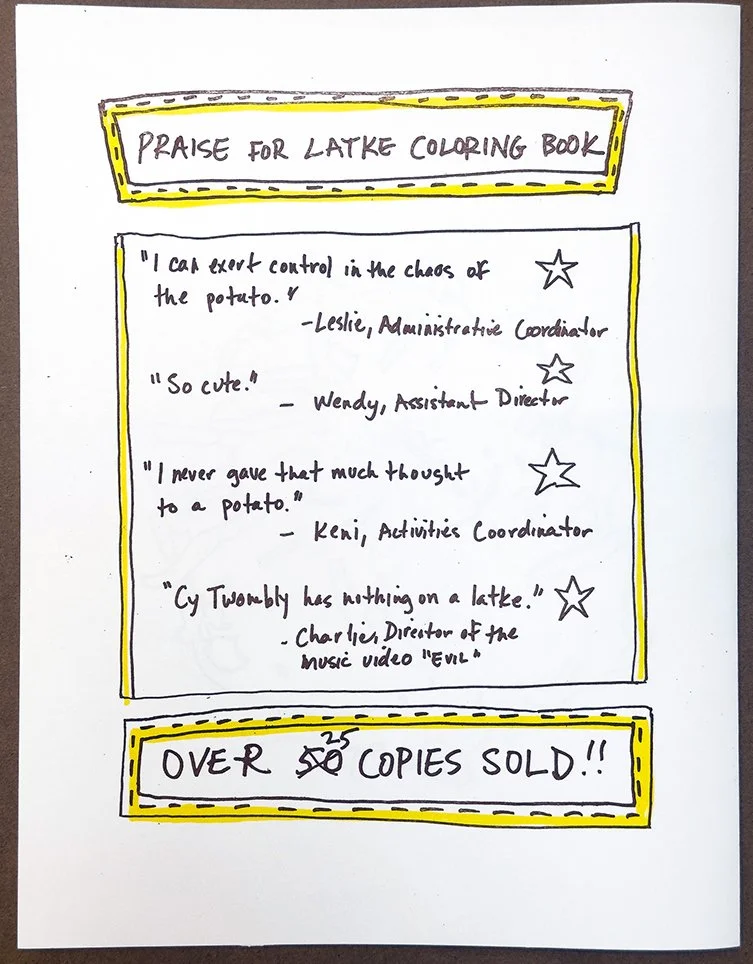 PRAISE FOR LATKE COLORING BOOK
"I can exert control in the chaos of
the potato."
-Leslie, Administrative Coordinator
"So cute."
- Wendy, Assistant Director
"I never gave that much thought
to a potato."
- Keni, Activities Coordinator
"Cy Twombly has nothing on a latke."
- Charlie, Director of the
music video "EVIL"
25
OVER 50 COPIES SOLD!!